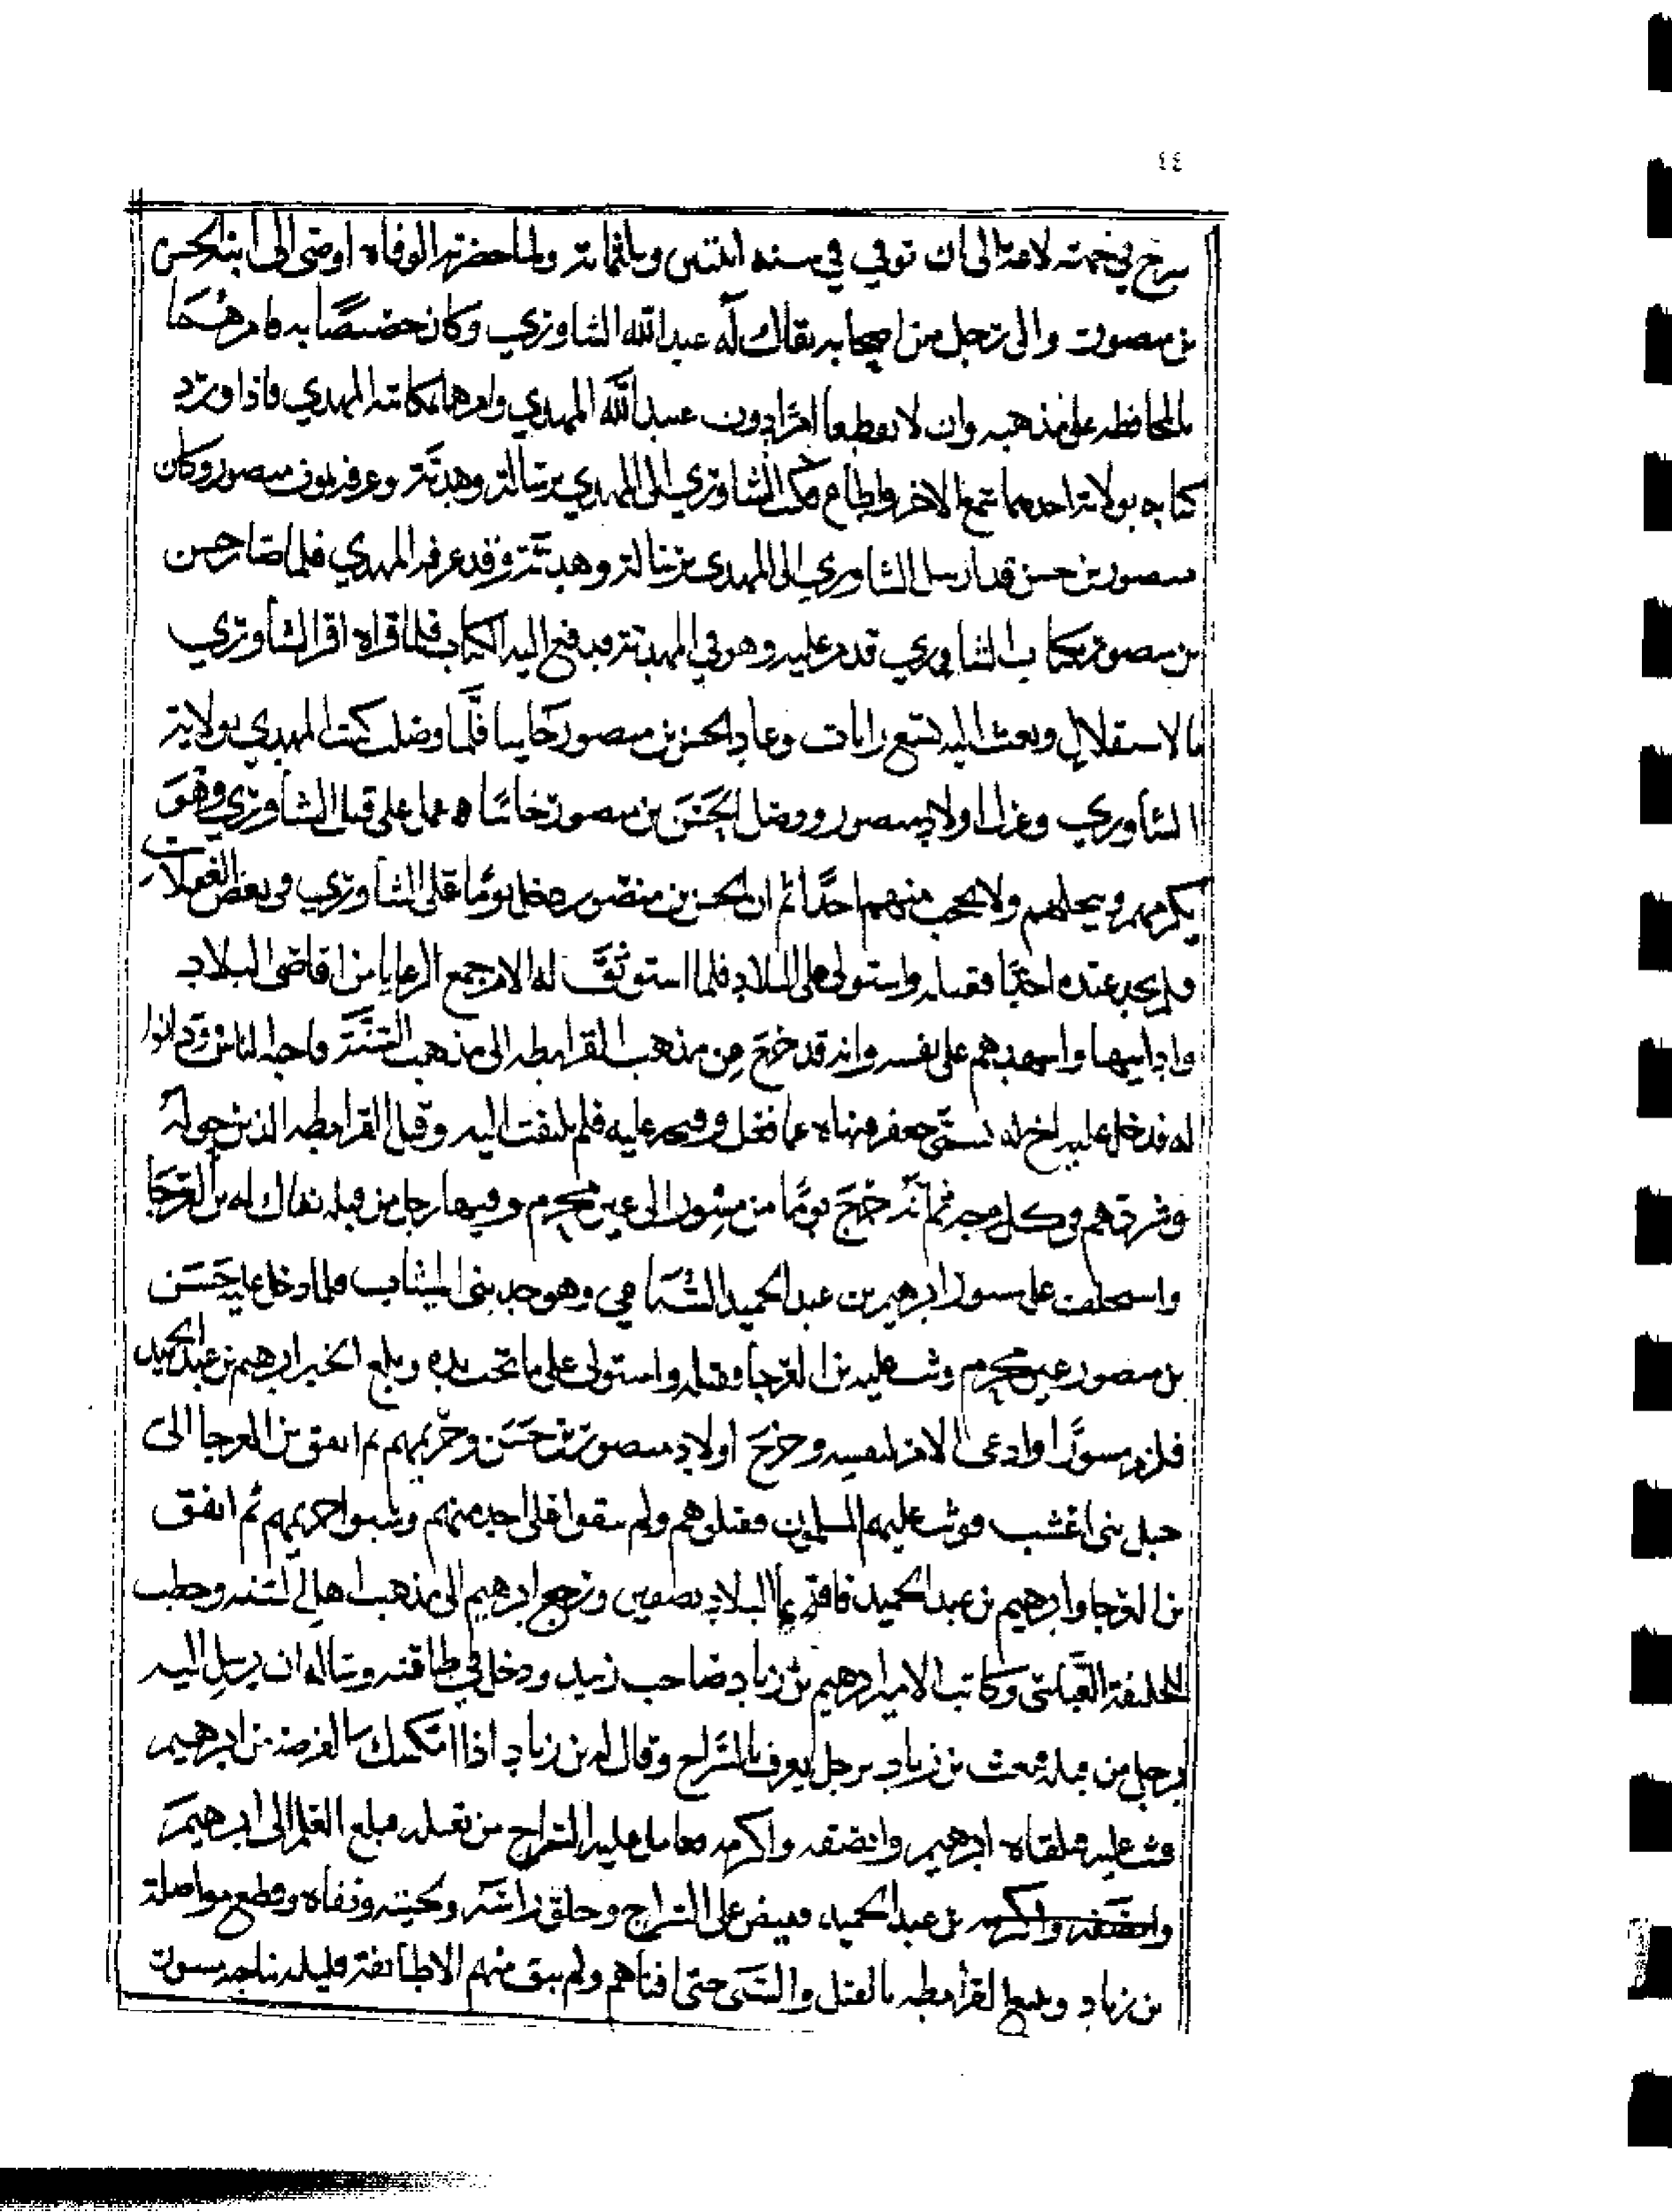 ٤٤
الى ان توفي في سنه اثنتين وثلثمائة ولما حضرته الوفاه اوصى الى ابنه الحسن
بن منصور والى رجل من اصحابه يقال له عبدالله الشاوري وكان خصيصا به فامرهما
بالمحافظه على مذهبه وان لا يقطعا امرا دون عبدالله المهدي وامرهما بمكاتبة المهدي فاذا ورد
كتابه بولاية احدهما سمع الاخر واطاع فكتب الشاوري الى المهدي برسالة وهدية وعرفه بموت منصور وكان
منصور بن حسن قد ارسل الشاوري الى المهدي برسالة وهدية وقد عرفه المهدي فلما صار حسن
بن منصور بكتاب الشاوري قدم عليه وهو في المهدية فدفع اليه الكتاب فلما قراه اقر الشاوري
بالاستقلال وبعث اليه بتسع رايات وعاد الحسن بن منصور خايبا فلما وصلت كتب المهدي بولاية
الشاوري وعزل اولاد منصور ووصل الحسن بن منصور خائبا عمل على قتل الشاوري وهو
يكرمهم ويبجلهم ولا يحجب منهم احدا ثم ان الحسن بن منصور دخل يوما على الشاوري في بعض الغفلات
فلم يجد عنده احدا فقتله واستولى على البلاد فلما استوثق له الامر جمع الرعايا من اقاصي البلاد
وادانيها واشهدهم على نفسه وانه قد خرج من مذهب القرامطه الى مذهب السنة فاحبه الناس ودانوا
له فدخل عليه اخ له يسمى جعفر فنهاه عما فعل وقبحه عليه فلم يلتفت اليه وقتل القرامطه الذين حوله
وشردهم في كل وجه ثم انه خرج يوما من مسور الى عين محرم وفيها رجل من قبله يقال له بن العرجا
واستخلف على مسور ابرهيم بن عبد الحميد الشباعي وهو جد بني المنتاب فلما دخل عليه حسن
بن منصور عين محرم وثب عليه بن العرجا وقتله واستولى على ما تحت يده وبلغ الخبر ابرهيم بن عبد الحميد
فلزم مسورا وادعى الامر لنفسه وخرج اولاد منصور بن حسن وحريمهم ثم اتفق بن العرجا الى
جبل بني اعشب فوثب عليهم المسلمون فقتلوهم ولم يبقوا على احد منهم وسبوا حريمهم ثم اتفق
بن العرجا وابرهيم بن عبد الحميد فاقتسما البلاد نصفين ورجع ابرهيم الى مذهب اهل السنه وخطب
للخليفة العباسي وكاتب الامير ابرهيم بن زياد صاحب زبيد ودخل في طاعته وساله ان يرسل اليه
برجل من قبله فبعث بن زياد برجل يعرف بالسراج وقال له بن زياد اذا امكنتك الفرصة من ابرهيم
فثب عليه فلقاه ابرهيم وانصفه واكرمه فعامل عليه السراج من يقتله فبلغ العلم الى ابرهيم
بن عبد الحميد فقبض على السراج وحلق راسه ولحيته ونفاه وقطع مواصلة
بن زياد وتتبع القرامطه بالقتل والسبي حتى افناهم ولم يبق منهم الا طائفة قليله بناحية مسور